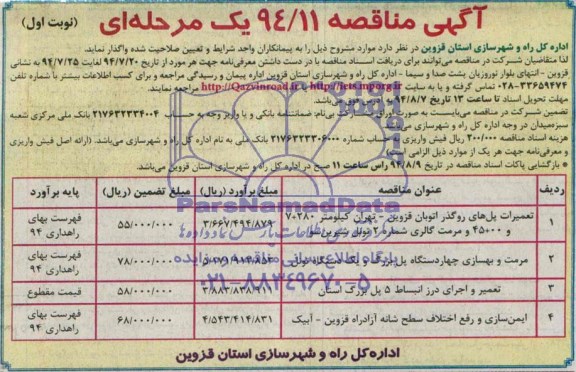 آگهی مناقصه ۹۴/۱۱ یک مرحله‌ای (نوبت اول)
اداره کل راه و شهرسازی استان قزوین در نظر دارد موارد مشروح ذیل را به پیمانکاران واجد شرایط و تعیین صلاحیت شده واگذار نماید.
لذا متقاضیان شرکت در مناقصه می‌توانند برای دریافت اسناد مناقصه با در دست داشتن معرفی‌نامه جهت هر مورد از تاریخ ۹۴/۷/۲۰ لغایت ۹۴/۷/۲۵ به نشانی
قزوین - انتهای بلوار نوروزیان پشت صدا و سیما - اداره کل راه و شهرسازی استان قزوین اداره پیمان و رسیدگی مراجعه و برای کسب اطلاعات بیشتر با شماره تلفن
۰۲۸-۳۳۶۵۹۴۷۴ تماس گرفته و یا به سایت http://iets.mporg.ir یا http://Qazvinroad.ir مراجعه نمایند.
مهلت تحویل اسناد تا ساعت ۱۳ تاریخ ۹۴/۸/۷ به آدرس فوق می‌باشد.
تضمین شرکت در مناقصه می‌بایست به صورت ضمانتنامه بانکی و یا واریز وجه به حساب ۲۱۷۶۳۲۳۳۴۰۰۴ بانک ملی مرکزی شعبه
سبزه‌میدان در وجه اداره کل راه و شهرسازی می‌باشد.
هزینه اسناد مناقصه ۲۰۰/۰۰۰ ریال فیش واریزی به حساب شماره ۲۱۷۶۳۲۳۳۰۶۰۰۰ بانک ملی به نام اداره کل راه و شهرسازی می‌باشد. (ارائه اصل فیش واریزی
و معرفی‌نامه جهت هر یک از موارد ذیل الزامی است)
* بازگشایی پاکات اسناد مناقصه در تاریخ ۹۴/۸/۹ راس ساعت ۱۱ صبح در اداره کل راه و شهرسازی استان قزوین می‌باشد.
ردیف عنوان مناقصه مبلغ برآورد (ریال) مبلغ تضمین (ریال) پایه برآورد
۱ تعمیرات پل‌های روگذر اتوبان قزوین - تهران کیلومتر ۷۰+۲۸۰ و ۴۵+۰۰۰ و مرمت گالری شماره ۲ تونل شیرین‌سو ۳/۶۶۷/۴۹۴/۸۷۹ ۵۵/۰۰۰/۰۰۰ فهرست بهای راهداری ۹۴
۲ مرمت و بهسازی چهاردستگاه پل بزرگ و یک دستگاه تونل ۷۸/۰۰۰/۰۰۰ فهرست بهای راهداری ۹۴
۳ تعمیر و اجرای درز انبساط ۵ پل بزرگ استان ۳/۸۸۳/۸۳۸/۹۱۱ ۵۸/۰۰۰/۰۰۰ قیمت مقطوع
۴ ایمن‌سازی و رفع اختلاف سطح شانه آزادراه قزوین - آبیک ۴/۵۴۳/۴۱۴/۸۳۱ ۶۸/۰۰۰/۰۰۰ فهرست بهای راهداری ۹۴
ParsNamadData
پایگاه اطلاع رسانی مناقصه و مزایده
۰۲۱-۸۸۳۴۹۶۷۰-۵
اداره کل راه و شهرسازی استان قزوین